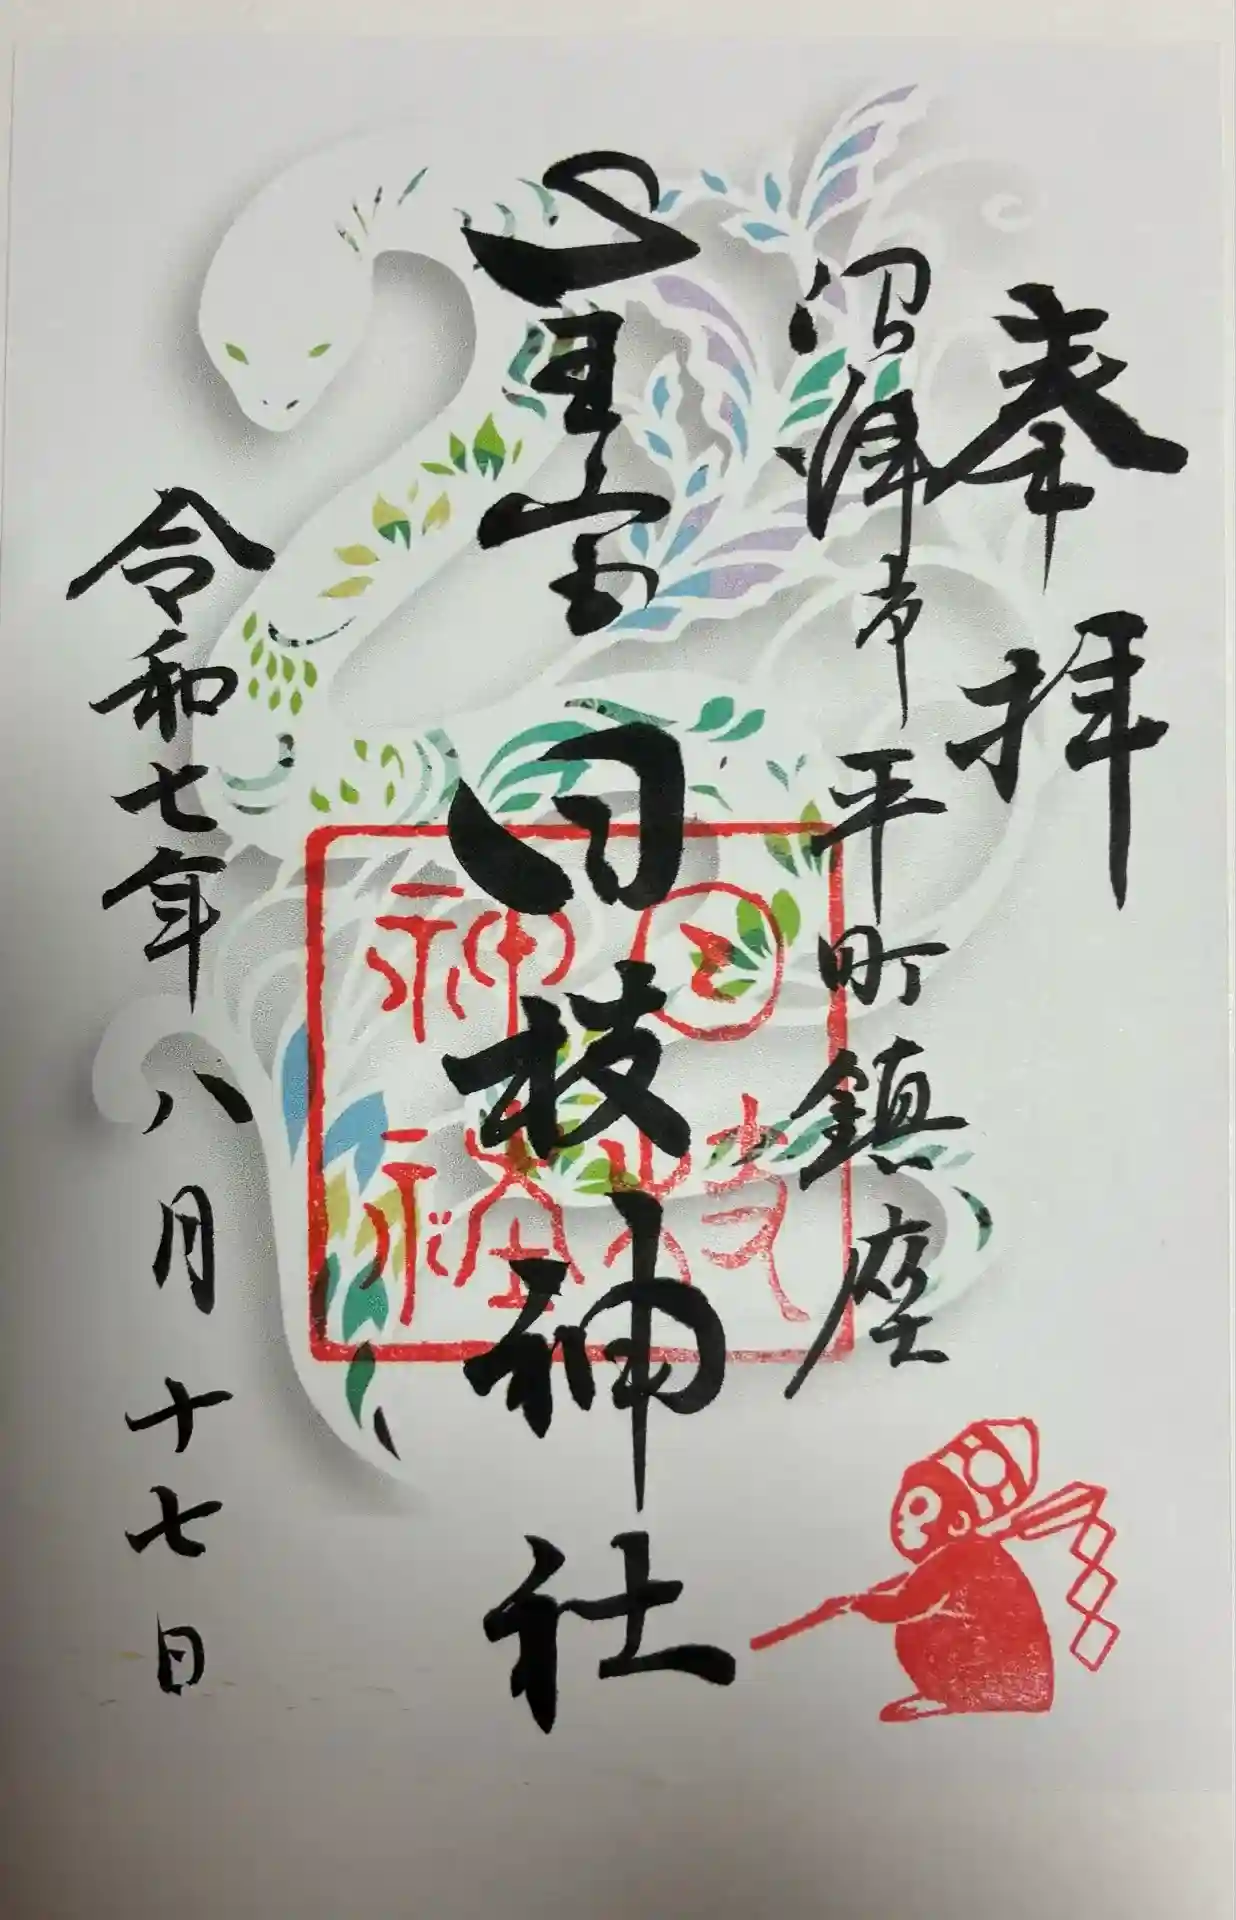 奉拝
沼津市平町鎮座
日枝神社
令和七年八月十七日
日枝
神社